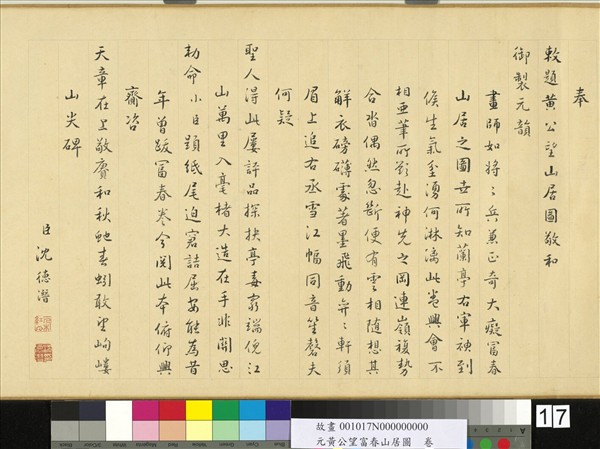 奉
敕題黃公望山居圖敬和
御製元韻
畫師如將將兵兼正奇大癡富春
山居之圖世所知蘭亭右軍神到
候生氣至湧何淋漓此卷興會不
相亞筆所欲赴神先之岡連嶺複勢
合沓偶然忽斷便有雲相隨想其
解衣磅礴處著墨飛動弁弁軒須
眉上追右丞雪江幅同音笙磬夫
何疑
聖人得此屢評品探抉亭毒窮端倪江
山萬里入毫楮大造在手非關思
勅命小臣題紙尾迫窘詰屈安能為昔
年曾跋富春卷今閱此本俯仰興
齎咨
天章在上敬賡和秋蛇春蚓敢望岣嶁
山尖碑
臣沈德潛
故畫 001017N000000000
元黃公望富春山居圖 卷
17